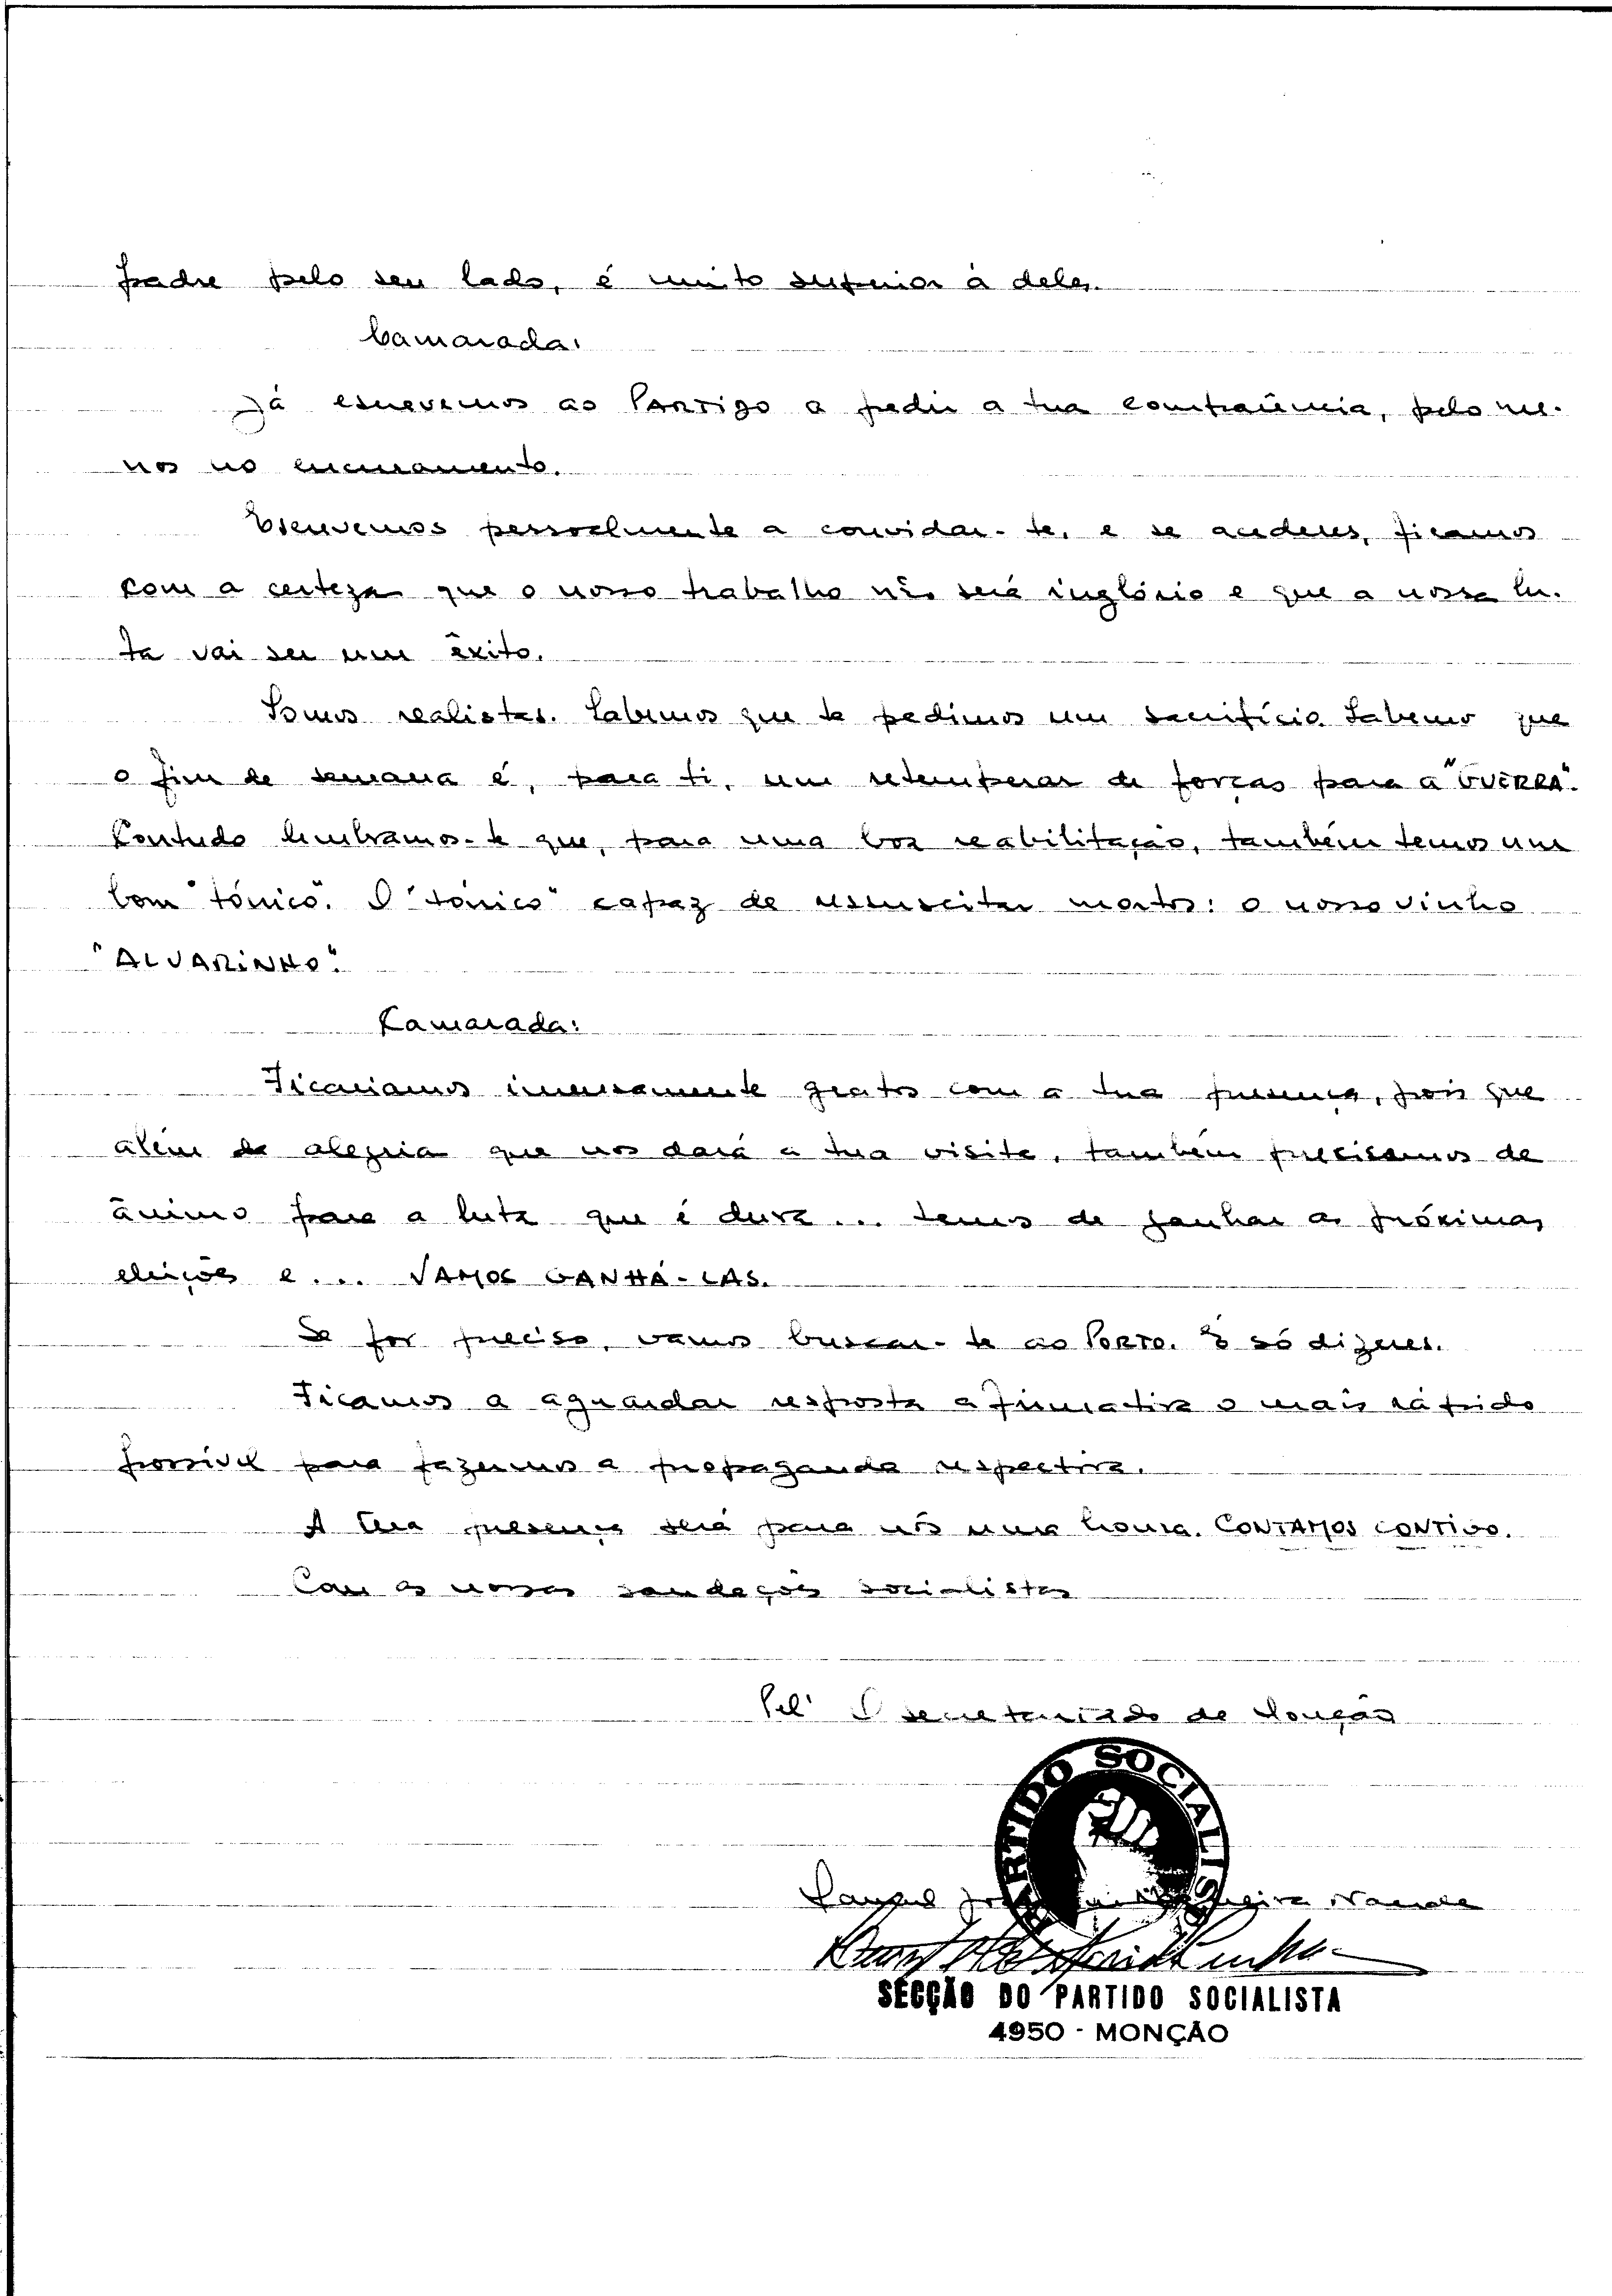 padre pelo seu lado, é muito superior à deles.
Camarada:
Já escrevemos ao PARTIDO a pedir a tua comparência, pelo me-
nos no encerramento.
Escrevemos pessoalmente a convidar-te, e se acederes, ficamos
com a certeza que o nosso trabalho não será inglório e que a nossa lu-
ta vai ser um êxito.
Somos realistas. Sabemos que te pedimos um sacrifício. Sabemos que
o fim de semana é, para ti, um retemperar de forças para a "GUERRA".
Contudo lembramos-te que, para uma boa reabilitação, também temos um
bom "tónico". O "tónico" capaz de ressuscitar mortos: o nosso vinho
"ALVARINHO".
Camarada:
Ficaríamos imensamente gratos com a tua presença, pois que
além da alegria que nos dará a tua visita, também precisamos de
ânimo para a luta que é dura... temos de ganhar as próximas
eleições e... VAMOS GANHÁ-LAS.
Se for preciso, vamos buscar-te ao PORTO. É só dizeres.
Ficamos a aguardar resposta afirmativa o mais rápido
possível para fazermos a propaganda respectiva.
A tua presença será para nós uma honra. CONTAMOS CONTIGO.
Com as nossas saudações socialistas
Pel' O secretariado de Monção
PARTIDO SOCIALISTA
SECÇÃO DO PARTIDO SOCIALISTA
4950 - MONÇÃO